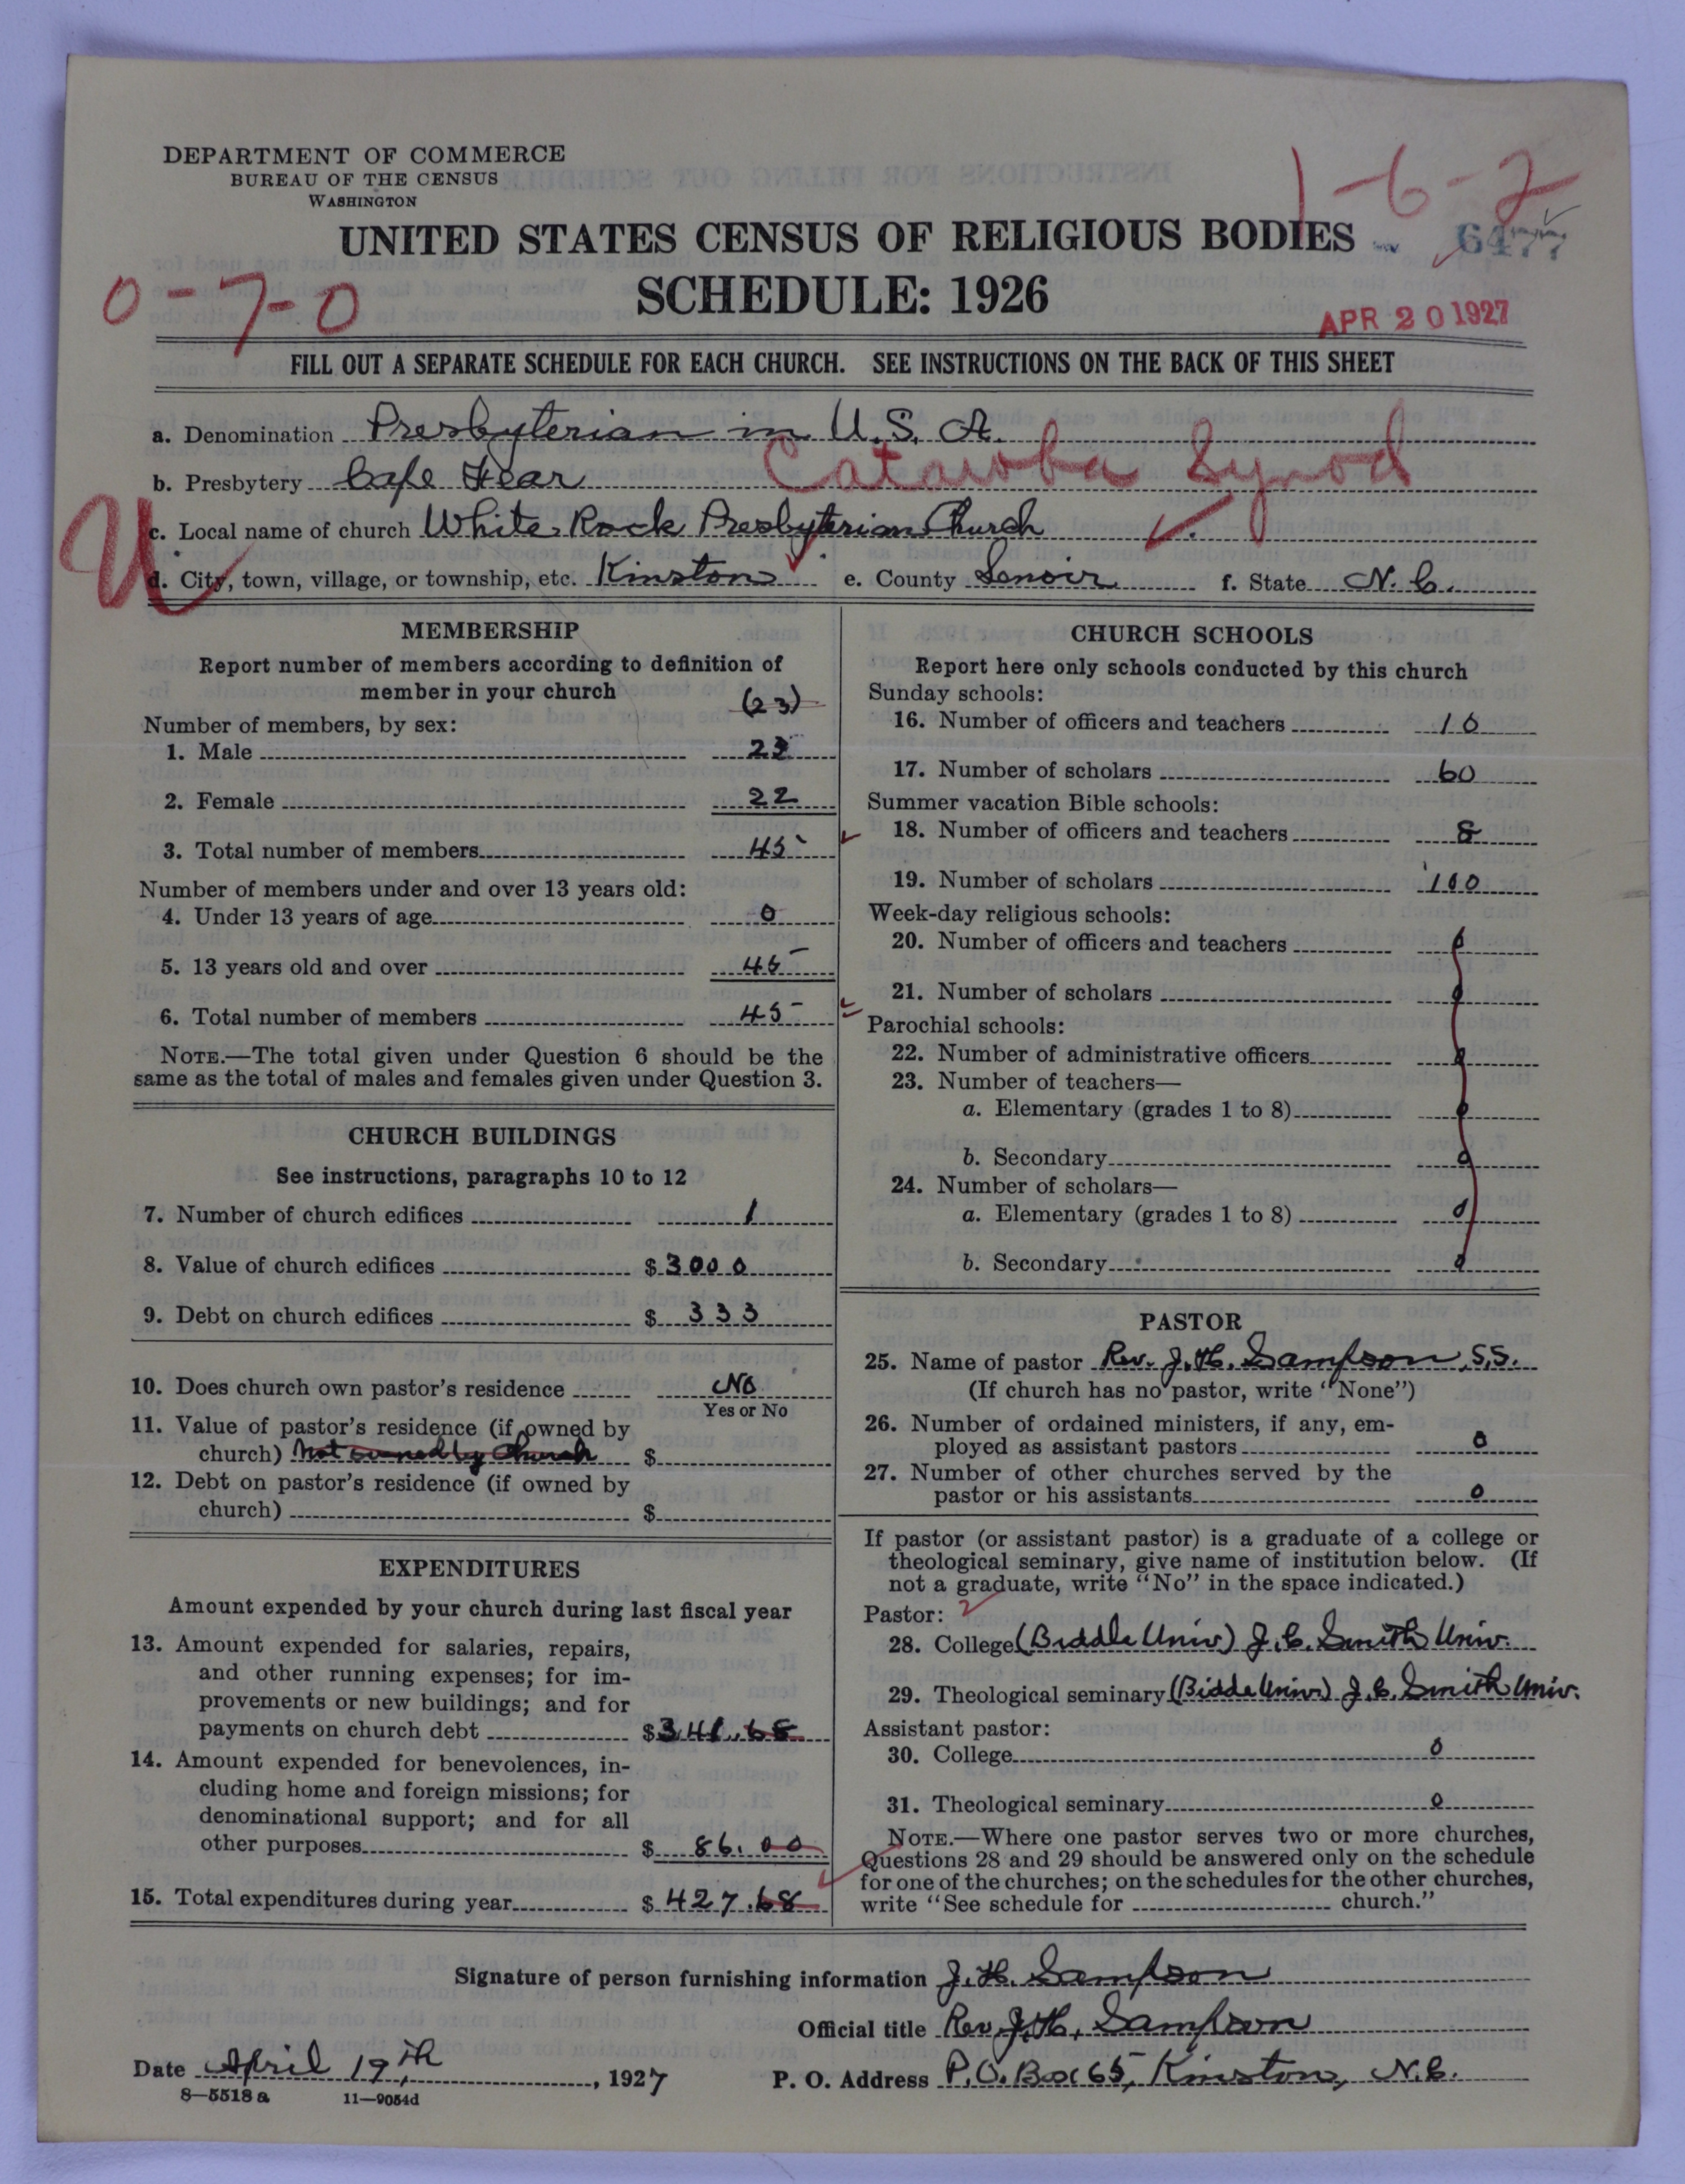 DEPARTMENT OF COMMERCE
BUREAU OF THE CENSUS
WASHINGTON
1-6-2
UNITED STATES CENSUS OF RELIGIOUS BODIES
6477
0-7-0
SCHEDULE: 1926
APR 20 1927
FILL OUT A SEPARATE SCHEDULE FOR EACH CHURCH. SEE INSTRUCTIONS ON THE BACK OF THIS SHEET
a. Denomination Presbyterian in U.S.A.
b. Presbytery Cape Fear Catawba Synod
U
c. Local name of church White Rock Presbyterian Church
d. City, town, village, or township, etc. Kinston e. County Lenoir f. State N.C.
MEMBERSHIP
Report number of members according to definition of
member in your church
(23)
Number of members, by sex:
1. Male 23
2. Female 22
3. Total number of members 45
Number of members under and over 13 years old:
4. Under 13 years of age 0
5. 13 years old and over 45
6. Total number of members 45
NOTE.—The total given under Question 6 should be the
same as the total of males and females given under Question 3.
CHURCH BUILDINGS
See instructions, paragraphs 10 to 12
7. Number of church edifices 1
8. Value of church edifices $3000
9. Debt on church edifices $ 333
10. Does church own pastor's residence No
Yes or No
11. Value of pastor's residence (if owned by
church) Not owned by Church $
12. Debt on pastor's residence (if owned by
church) $
EXPENDITURES
Amount expended by your church during last fiscal year
13. Amount expended for salaries, repairs,
and other running expenses; for im-
provements or new buildings; and for
payments on church debt $341.68
14. Amount expended for benevolences, in-
cluding home and foreign missions; for
denominational support; and for all
other purposes $ 86.00
15. Total expenditures during year $427.68
CHURCH SCHOOLS
Report here only schools conducted by this church
Sunday schools:
16. Number of officers and teachers 10
17. Number of scholars 60
Summer vacation Bible schools:
18. Number of officers and teachers 8
19. Number of scholars 100
Week-day religious schools:
20. Number of officers and teachers 0
21. Number of scholars 0
Parochial schools:
22. Number of administrative officers 0
23. Number of teachers—
a. Elementary (grades 1 to 8) 0
b. Secondary 0
24. Number of scholars—
a. Elementary (grades 1 to 8) 0
b. Secondary 0
PASTOR
25. Name of pastor Rev. J.H. Sampson, S.S.
(If church has no pastor, write "None")
26. Number of ordained ministers, if any, em-
ployed as assistant pastors 0
27. Number of other churches served by the
pastor or his assistants 0
If pastor (or assistant pastor) is a graduate of a college or
theological seminary, give name of institution below. (If
not a graduate, write "No" in the space indicated.)
Pastor: 2
28. College (Biddle Univ) J.C. Smith Univ.
29. Theological seminary (Biddle Univ) J.C. Smith Univ.
Assistant pastor:
30. College 0
31. Theological seminary 0
NOTE.—Where one pastor serves two or more churches,
Questions 28 and 29 should be answered only on the schedule
for one of the churches; on the schedules for the other churches,
write "See schedule for church."
Signature of person furnishing information J.H. Sampson
Official title Rev. J.H. Sampson
Date April 19th, 1927 P. O. Address P.O. Box 65, Kinston, N.C.
8—5518 a 11—9054d